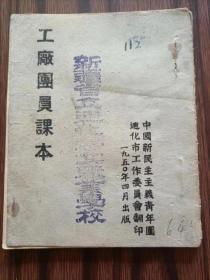 中國新民主主義青年團
迪化市工作委員會翻印
一九五〇年四月出版
新疆省 學校
工廠團員課本